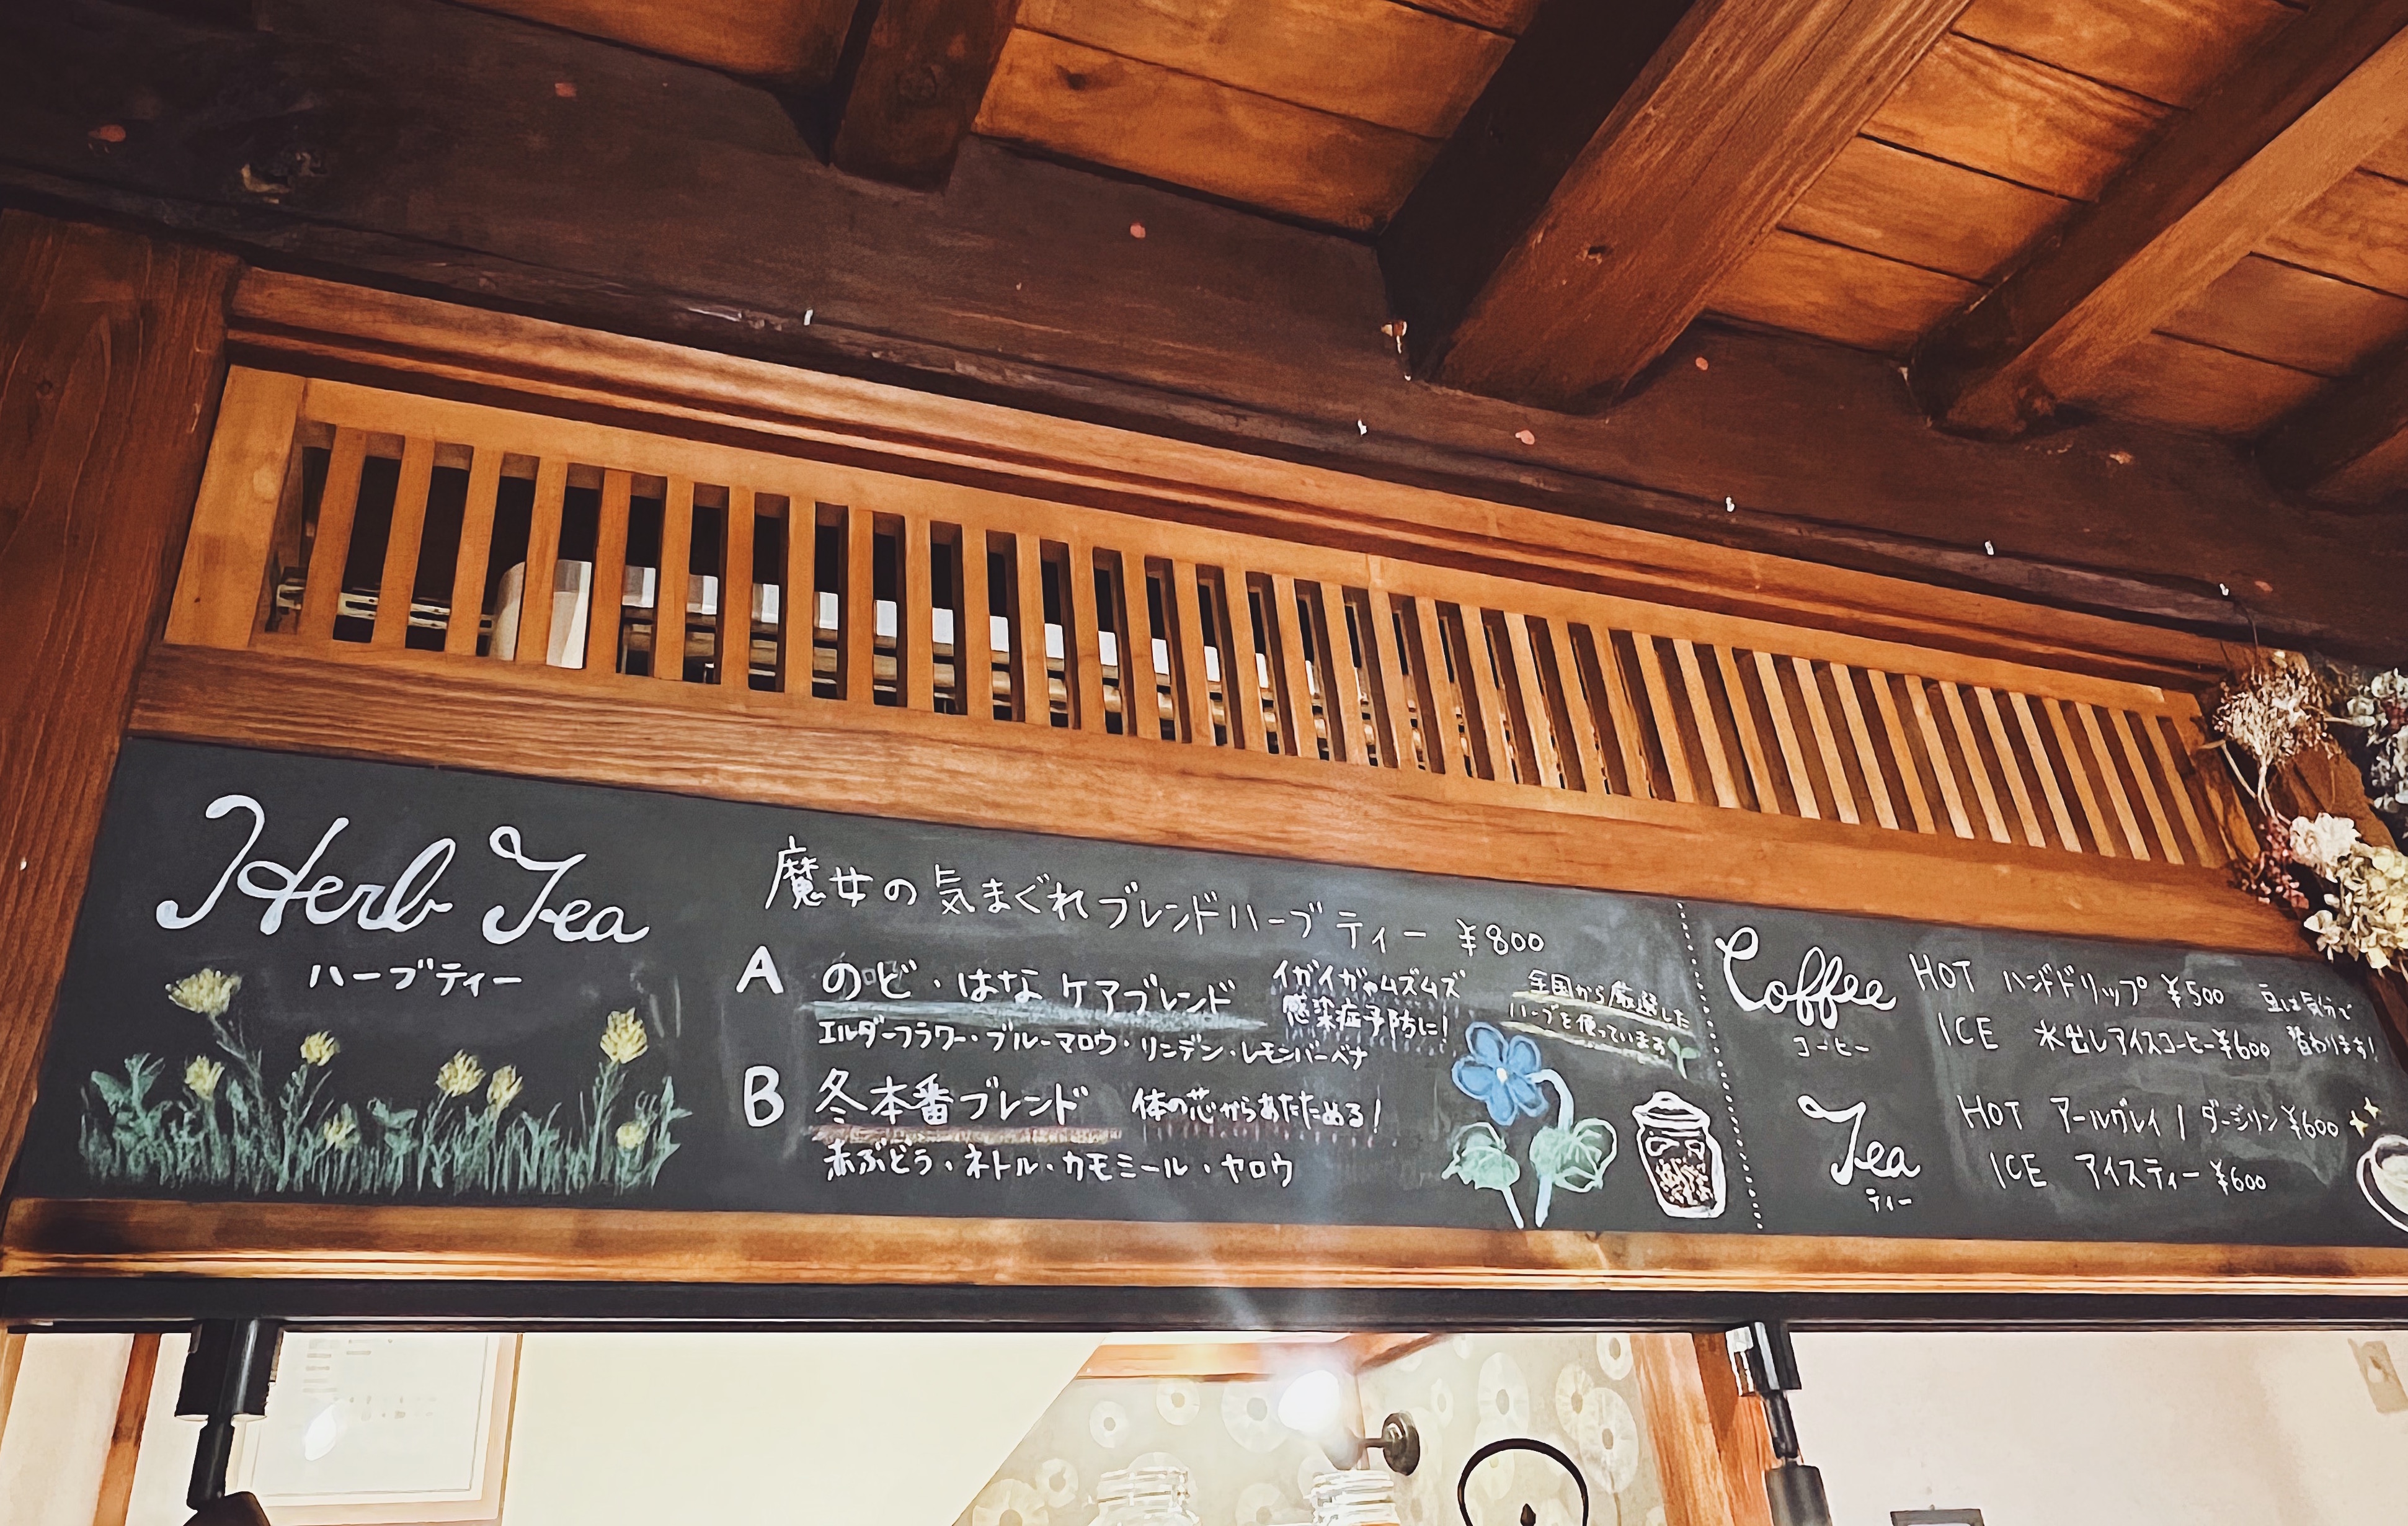 Herb Tea
ハーブティー
魔女の気まぐれブレンドハーブティー ¥800
A のど・はなケアブレンド
イガイガやムズムズ
感染症予防に!
エルダーフラワー・ブルーマロウ・リンデン・レモンバーベナ
全国から厳選した
ハーブを使っています
B 冬本番ブレンド 体の芯からあたためる!
赤ぶどう・ネトル・カモミール・ヤロウ
Coffee
コーヒー
HOT ハンドドリップ ¥500
ICE 水出しアイスコーヒー ¥600
豆は気分で
替わります!
Tea
ティー
HOT アールグレイ / ダージリン ¥600
ICE アイスティー ¥600